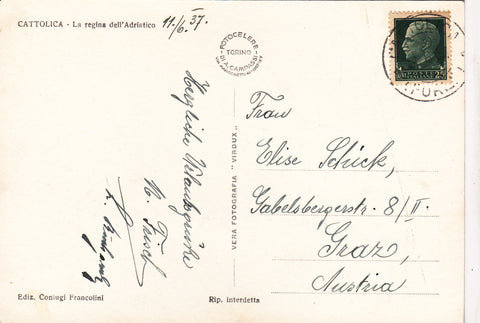 CATTOLICA - La regina dell'Adriatico 11./6.37.
FOTOCELERE
TORINO
DI A. CAMPASSI
Herzliche Urlaubsgrüße
N. Frisch
VERA FOTOGRAFIA "VIRDUX"
POSTE ITALIANE
Frau
Elise Schick,
Gabelsbergerstr. 8/II.
Graz,
Austria
Ediz. Coniugi Francolini
Rip. interdetta